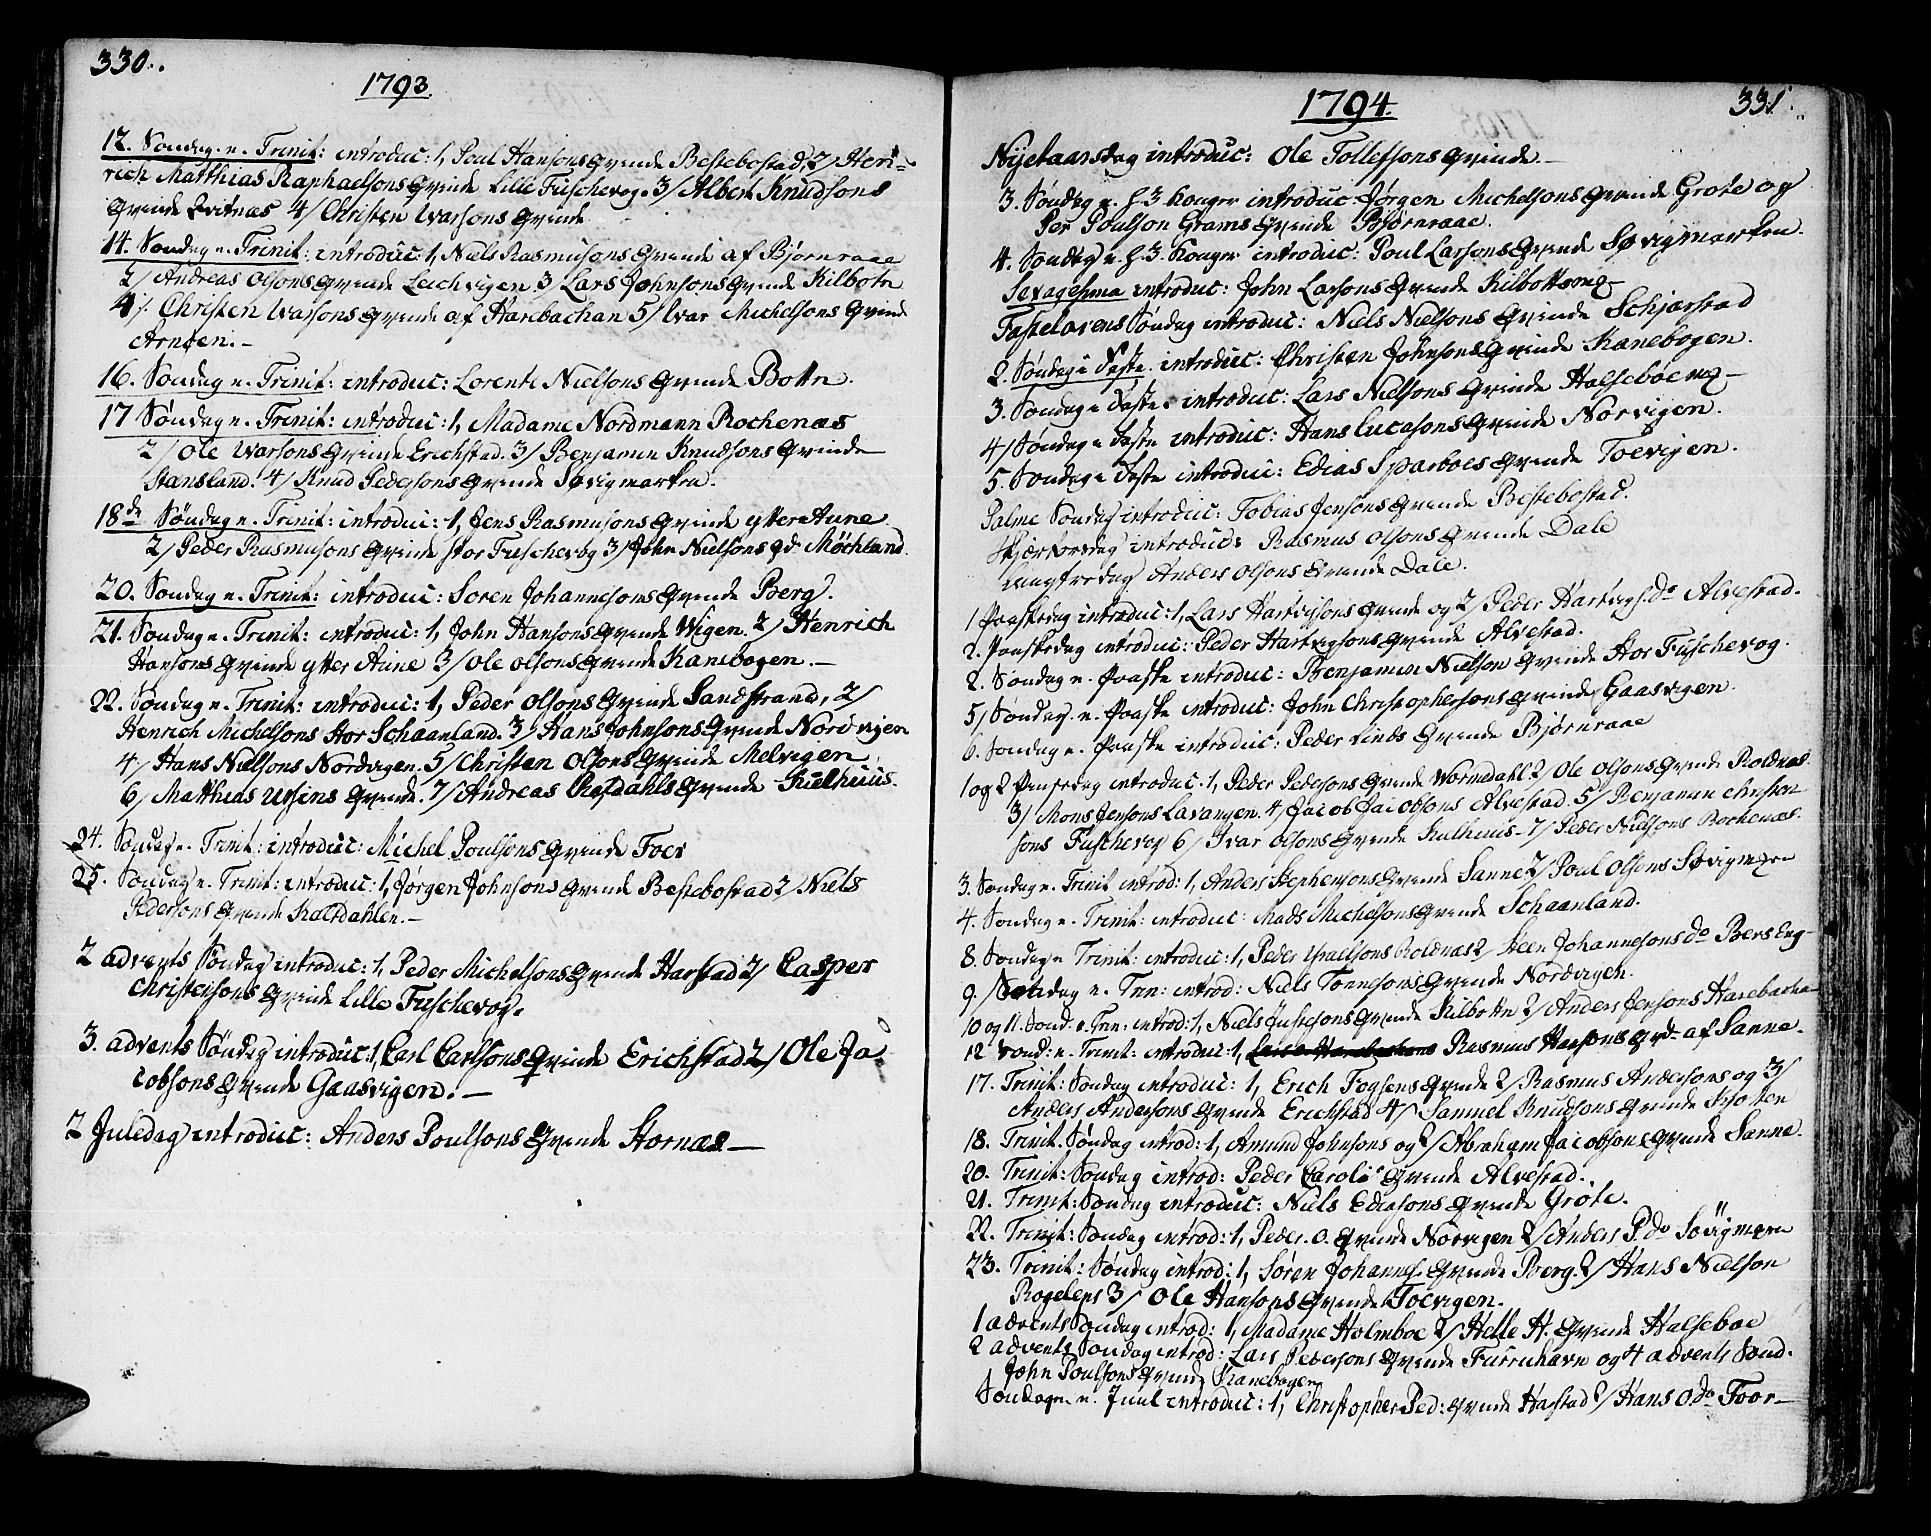 330.
1793.
12. Søndag n. Trinit: introduc: 1, Poul Hansons Qvinde Bestebostad, 2/ Hen-
rich Matthias Raphaelsons Qvinde Lille Fuschevog. 3/ Albert Knudsons
Qvinde Qvitnæs 4/ Christen Ivarsons Qvinde
14. Søndag n. Trinit: introduc: 1, Niels Rasmusons Qvinde af Bjørnraae
2/ Andreas Olsons Qvinde Leichvigen 3/ Lars Johnsons Qvinde Kilbotn
4/. Christen Ivarsons Qvinde af Harebachan 5/ Ivar Michelsons Qvinde
Arnøen. -
16. Søndag n. Trinit: introduc: Lorents Nielsons Qvinde Bottn.
17 Søndag n. Trinit: introduc: 1, Madame Nordmann Rochenæs
2/ Ole Ivarsons Qvinde Erichstad. 3/ Benjamin Knudsons Qvinde
Stansland. 4/ Knud Pedersons Qvinde Søvigmarken.
18de Søndag n. Trinit: introduc: 1, Jens Rasmusons Qvinde ytter Aune
2/ Peder Rasmusons Qvinde stor Fuschevog 3/ John Nielsons Qd. Møchland.
20. Søndag n. Trinit: introduc: Soren Johannesons Qvinde Berg.
21. Søndag n. Trinit: introduc: 1, John Hansons Qvinde Wigen. 2/ Henrich
Hansons Qvinde ytter Aune 3/ Ole Olsons Qvinde Kanebogen. -
22. Søndag n. Trinit: introduc: 1, Peder Olsons Qvinde Sandstrand, 2/
Henrich Michelsons Stor Schaanland. 3/ Hans Johnsons Qvinde Nordvigen
4/ Hans Nielsons Nordvigen. 5/ Christen Olsons Qvinde Melvigen
6/ Matthias Ursins Qvinde. 7/ Andreas Rafdahls Qvinde Kulhuus.
24. Søndag n. Trinit: introduc: Michel Poulsons Qvinde Foer
25. Søndag n. Trinit: introduc: 1, Jørgen Johnsons Qvinde Bestebostad 2/ Niels
Pedersons Qvinde Kalfdahlen. -
2 advents Søndag introduc: 1, Peder Michelsons Qvinde Harstad 2/ Casper
Christensons Qvinde Lille Fuschevog.
3. advents Søndag introduc: 1, Carl Carlsons Qvinde Erichstad 2/ Ole Ja-
cobsons Qvinde Gaasvigen. -
2 Juledag introduc: Anders Poulsons Qvinde Stornæs -
1794.
331.
Nyetaarsdag introduc: Ole Tollefsons Qvinde -
3. Søndag n. H. 3 Konger introduc Jørgen Michelsons Qvinde Grote og
Per Poulson Grams Qvinde Bjørnraae.
4. Søndag n. H. 3 Konger introduc: Poul Larsons Qvinde Søvigmarken.
Sexagesima introduc: John Larsons Qvinde Kilbottvog -
Fastelavens Søndag introduc: Niels Nielsons Qvinde Schjærstad
2. Søndag i Faste. introduc: Christen Johnsons Qvinde Kanebogen.
3. Søndag i Faste. introduc: Lars Nielsons Qvinde Halsebøe vog -
4/ Søndag i Faste introduc: Hans Lucasons Qvinde Norvigen.
5. Søndag i Faste introduc: Edias Sparboes Qvinde Toevigen.
Palme Søndag introduc: Tobias Jensons Qvinde Bestebostad.
Skjærtorsdag introduc: Rasmus Olsons Qvinde Dale
Langfredag Anders Olsons Qvinde Dale.
1 Paaskedag introduc: 1, Lars Hartvigsons Qvinde og 2/ Peder Hartvigs. do Alvestad.
2. Paaskedag introduc: Peder Hartvigsons Qvinde Alvestad.
2. Søndag n. Paaske introduc: Benjamin Nielson Qvinde Stor Fuschevog.
5/ Søndag n. Paaske introduc: John Christophersons Qvinde Gaasvigen.
6. Søndag n. Paaske introduc: Peder Qvinde Bjørnraae
1 og 2 Pinsedag introduc: 1, Peder Pedersons Qvinde Wormedahl 2/ Ole Olsons Qvinde Roldnæs.
3/ Mons Jensons Lavangen. 4/ Jacob Jacobsons Alvestad. 5/ Benjamin Christen
sons Fuschevog 6/ Ivar Olsons Qvinde Kulhuus - 7/ Peder Nielsons Rochenæs.
3. Søndag n. Trinit introd: 1, Anders Stephensons Qvinde Sanne 2/ Poul Olsons Søvigmaren
4. Søndag n. Trinit: introduc: Mads Michelsons Qvinde Schaanland.
8. Søndag n Trinit: introduc: 1, Peder Ivarsons Roldnæs 2/ Steen Johannesons do Bers Eng -
9. Søndag n. Trin: introd: Niels Tønnesons Qvinde Nordvigen.
10 og 11. Sønd. n. Trin: introd: 1, Niels Justesons Qvinde Kilbottn 2/ Anders Jensons Harebacha-
12 Sønd: n. Trinit: introduc: 1, Rasmus Hansons Qvd af Sanne -
17. Trinit: Søndag introduc: 1, Erich Fogsens Qvinde 2/ Rasmus Andersons og 3/
Anders Andersons Qvinde Erichstad 4/ Samuel Knudsons Qvinde
18. Trinit. Søndag introd: 1, Amund Johnsons og 2/ Abraham Jacobsons Qvinde Sanne.
20. Trinit: Søndag introd: Peder Caroli Qvinde Alvestad.
21. Trinit: Søndag introduc: Niels Ediasons Qvinde Grote.
22. Trinit: Søndag introd: 1, Peder. O. Qvinde Norvigen 2/ Anders P. do Søvigmaren
23. Trinit: Søndag introd: 1, Søren Johannes. Qvinde Berg. 2/ Hans Nielson
Rogelens 3/ Ole Hansons Qvinde Toevigen.
1 advents Søndag introd: 1, Madame Holmboe 2/ Helle H. Qvinde Halseboe
2 advents Søndag introd: Lars Pedersons Qvinde Furruhavn og 4 advents Sønd.
John Poulsons Qvinde Kanebogen
Søndagen n. Juul introduc: 1, Christopher Ped: Qvinde Harstad 2/ Hans O. do Foor -